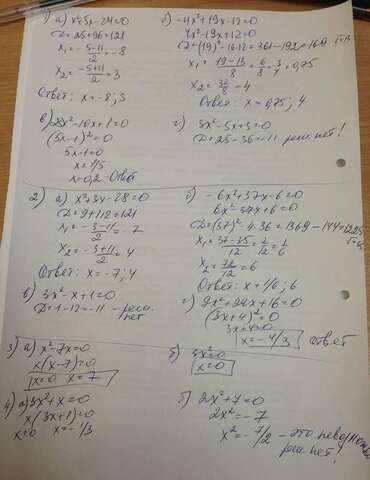 1) а) x²+5x-24=0
D=25+96=121
x₁=(-5-11)/2=-8
x₂=(-5+11)/2=3
Ответ: x=-8; 3
б) -4x²+19x-12=0
4x²-19x+12=0
D=(19)²-16·12=361-192=169
x₁=(19-13)/8=6/8=3/4=0,75
x₂=32/8=4
Ответ: x=0,75; 4
в) 25x²-10x+1=0
(5x-1)²=0
5x-1=0
x=1/5
x=0,2 - Ответ
г) 3x²-5x+3=0
D=25-36=-11 реш. нет!
2) а) x²+3x-28=0
D=9+112=121
x₁=(-3-11)/2=-7
x₂=(-3+11)/2=4
Ответ: x=-7; 4
б) -6x²+37x-6=0
6x²-37x+6=0
D=(37)²-4·36=1369-144=1225
x₁=(37-35)/12=2/12=1/6
x₂=72/12=6
Ответ: x=1/6; 6
в) 3x²-x+1=0
D=1-12=-11 - реш. нет
г) 9x²+24x+16=0
(3x+4)²=0
3x+4=0
x=-4/3 ответ
3) а) x²-7x=0
x(x-7)=0
x=0 x=7
б) 5x²=0
x=0
4) а) 3x²+x=0
x(3x+1)=0
x=0 x=-1/3
б) 2x²+7=0
2x²=-7
x²=-7/2 - это невозможно
реш. нет!